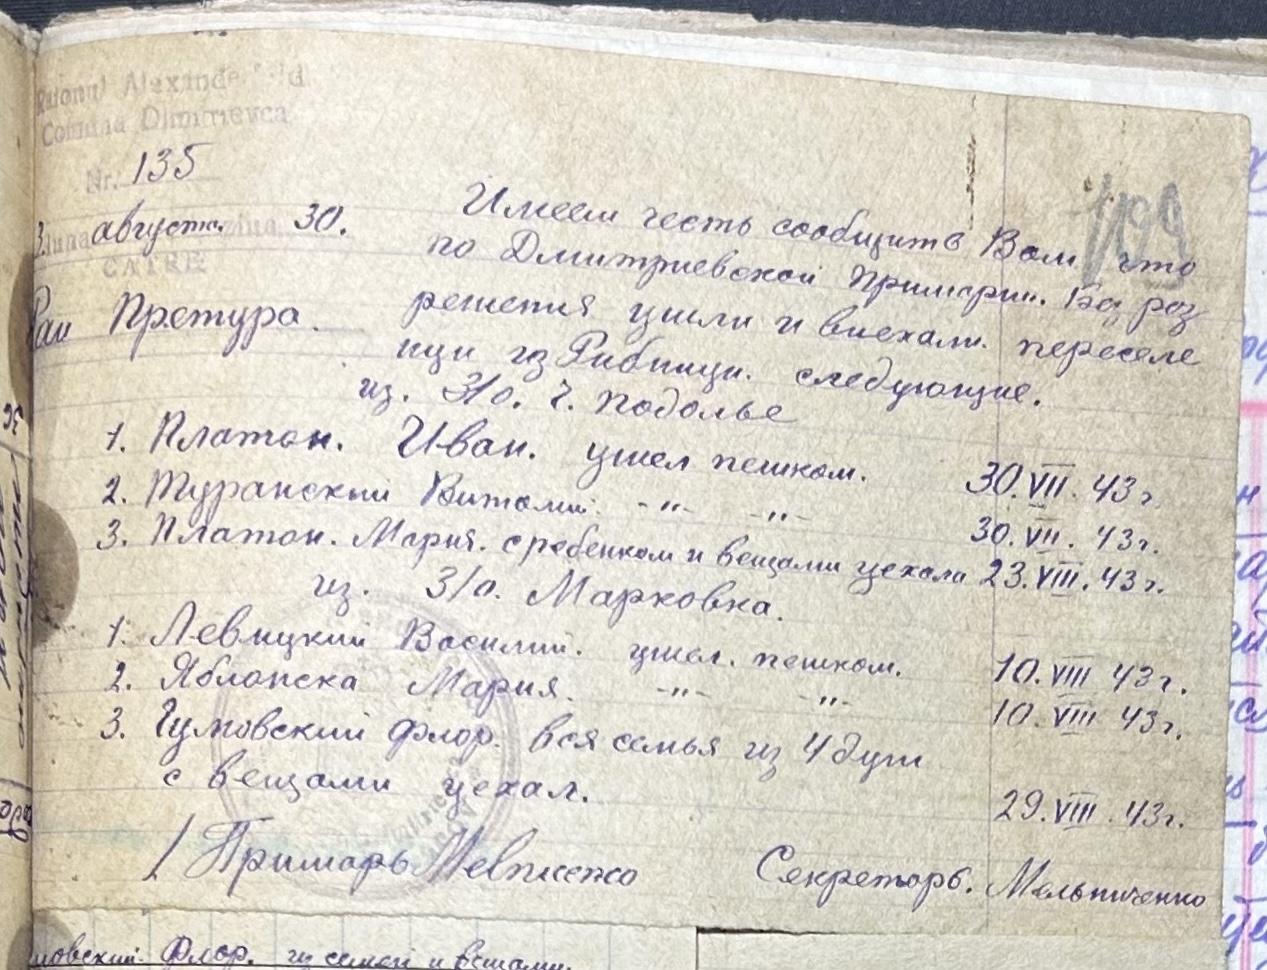 Raionul Alexanderfeld
Comuna Dimitrievca
Nr. 135
августа 30.
CĂTRE
Рай Претура.
1199
Имеем честь сообщить Вам что
по Дмитриевской примарии. Без раз
решения ушли и виехали. переселе
нци из Рибници. следующие.
из. З/о. ч. Подолье
1. Платон. Иван. ушел пешком. 30.VII.43г.
2. Туранский Виталий. -"- -"- 30.VII.43г.
3. Платон. Мария. с ребенком и вещами уехала 23.VIII.43г.
из. З/о. Марковка.
1. Левицкий Василий. ушел. пешком. 10.VIII 43г.
2. Яблонска Мария. -"- -"- 10.VIII 43г.
3. Гумовский Флор. вся семья из 4 душ
с вещами уехал. 29.VIII.43г.
Примарь Секреторь. Мельниченко
Флор. из семей и вещами.